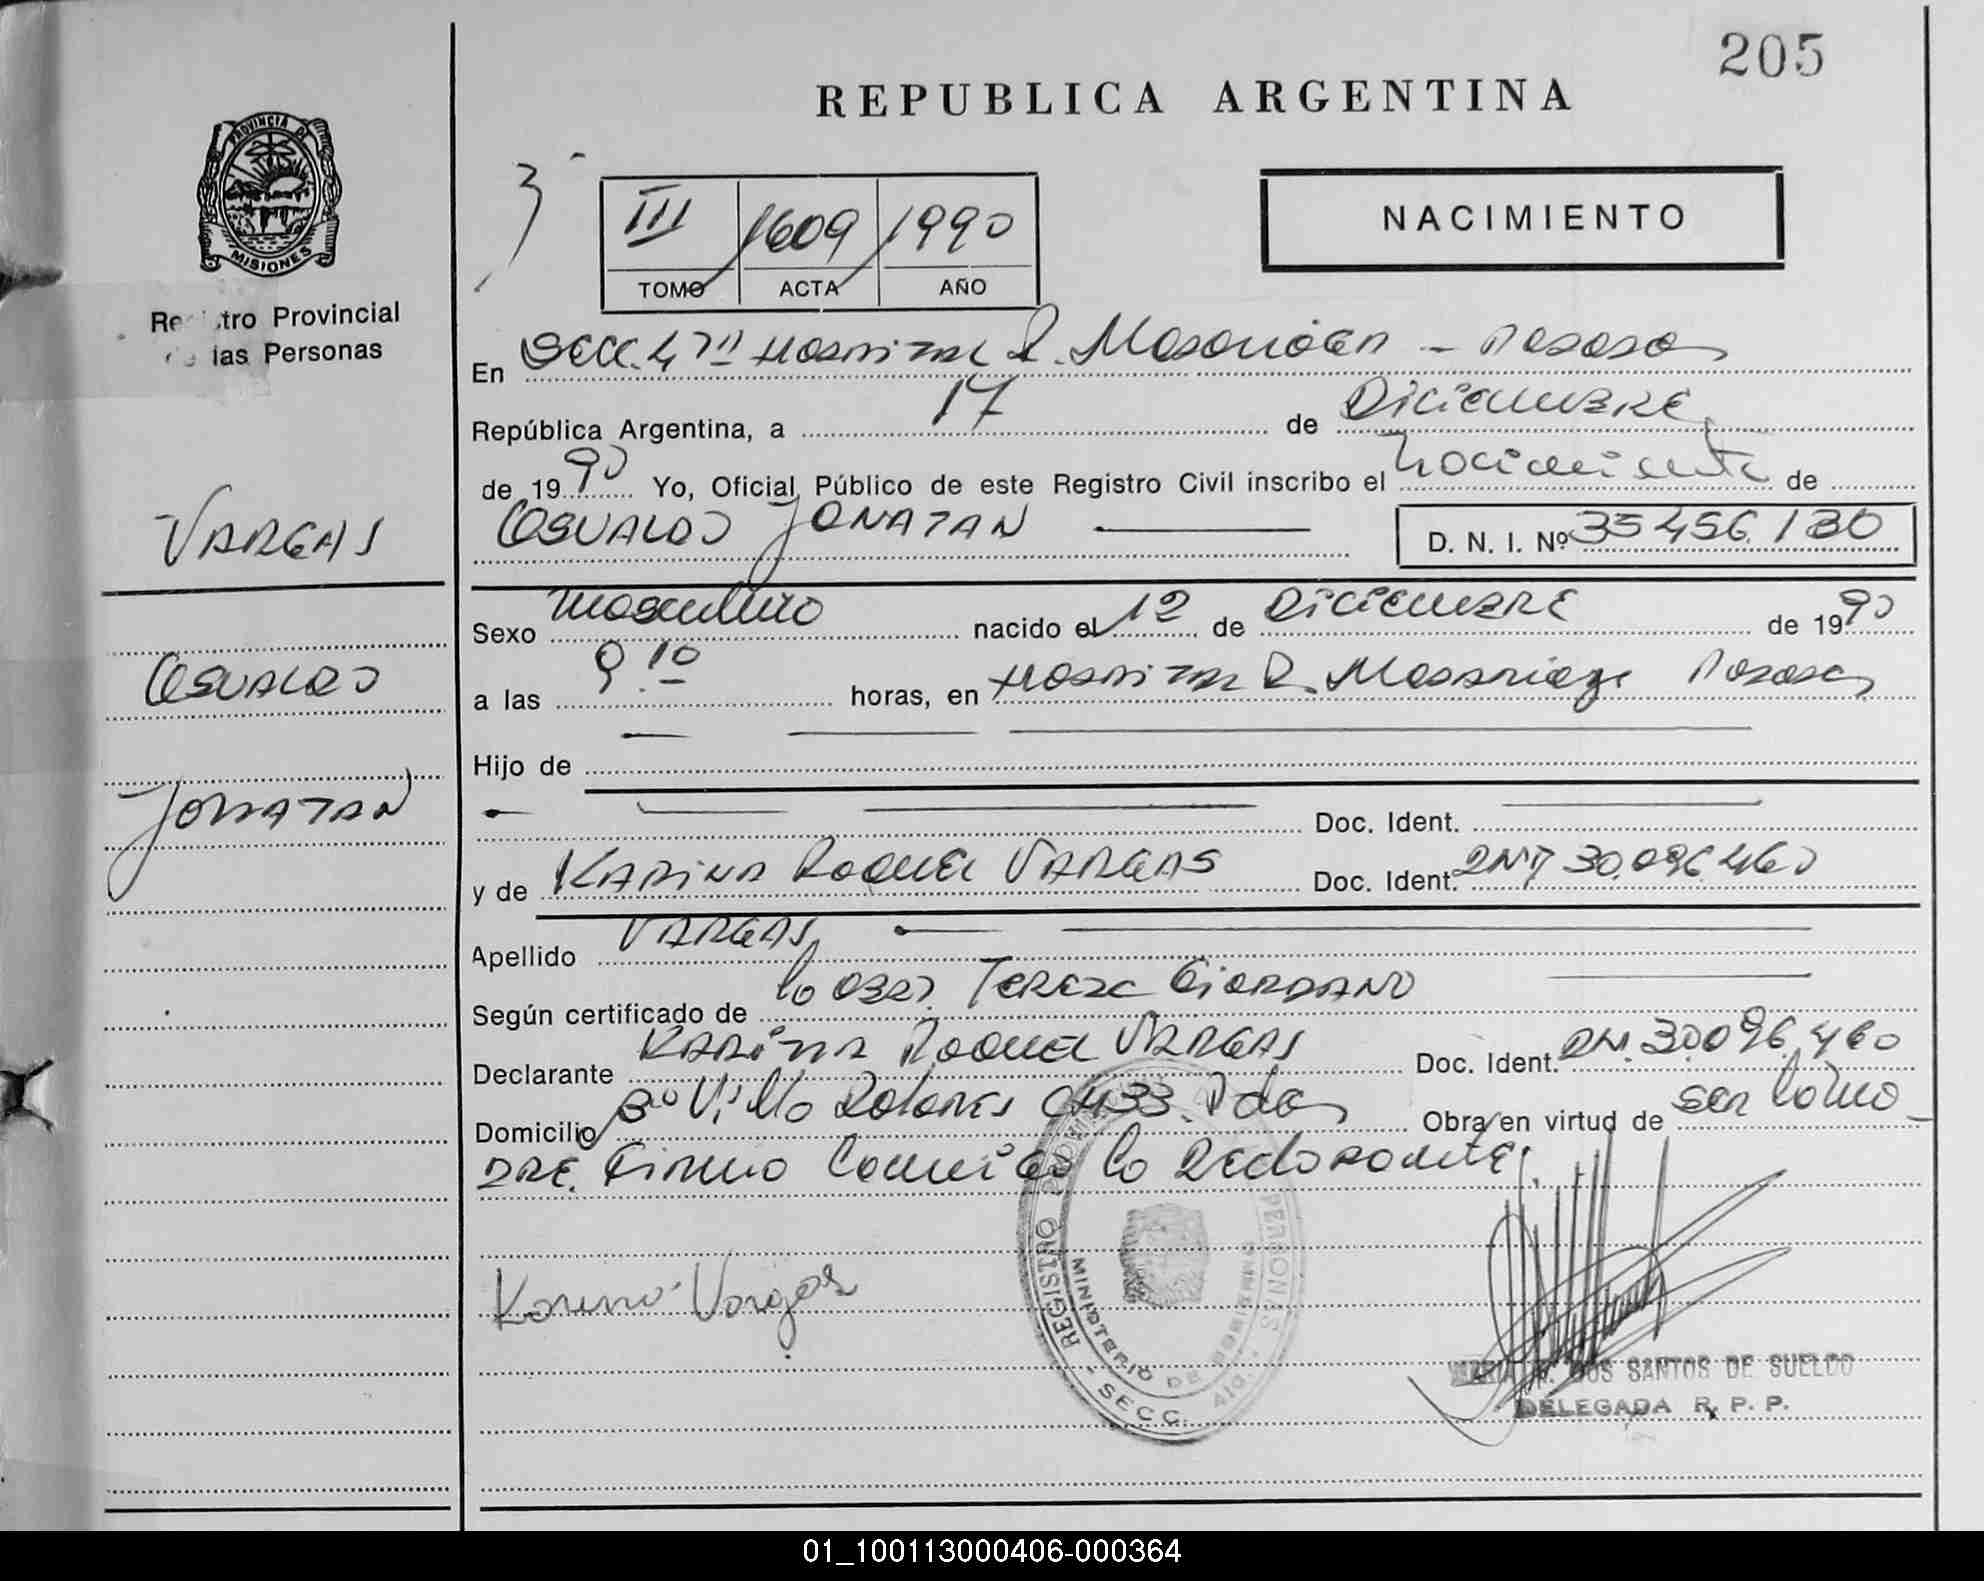 205
REPUBLICA ARGENTINA
PROVINCIA DE
MISIONES
Registro Provincial
de las Personas
III 1609 1990
TOMO ACTA AÑO
NACIMIENTO
En Secc. 4ta Hospital R. Madariaga - Posadas
República Argentina, a 17 de Diciembre
de 1990 Yo, Oficial Público de este Registro Civil inscribo el nacimiento de
OSVALDO JONATAN D. N. I. Nº 35456.130
VARGAS
Sexo masculino nacido el 12 de Diciembre de 1990
OSVALDO
a las 9.10 horas, en Hospital R. Madariaga Posadas
Hijo de
JONATAN
Doc. Ident.
y de KARINA RAQUEL VARGAS Doc. Ident. DNI 30.096.460
Apellido VARGAS
Según certificado de la Obst. TERESA GIORDANO
Declarante KARINA RAQUEL VARGAS Doc. Ident. DNI. 30.096.460
Domicilio Bº Villa Dolores CH33. Pdas Obra en virtud de ser la Ma-
dre. Firma conmigo la declarante.
Karina Vargas
REGISTRO PROVINCIAL PERSONAS
MINISTERIO DE GOBIERNO
SECC.
DOS SANTOS DE SUELDO
DELEGADA R. P. P.
01_100113000406-000364